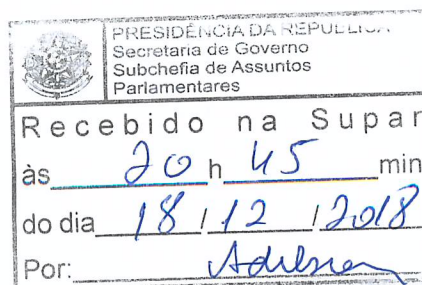 PRESIDÊNCIA DA REPÚBLICA
Secretaria de Governo
Subchefia de Assuntos
Parlamentares
Recebido na Supar
às 20 h 45 min
do dia 18 / 12 / 2018
Por: